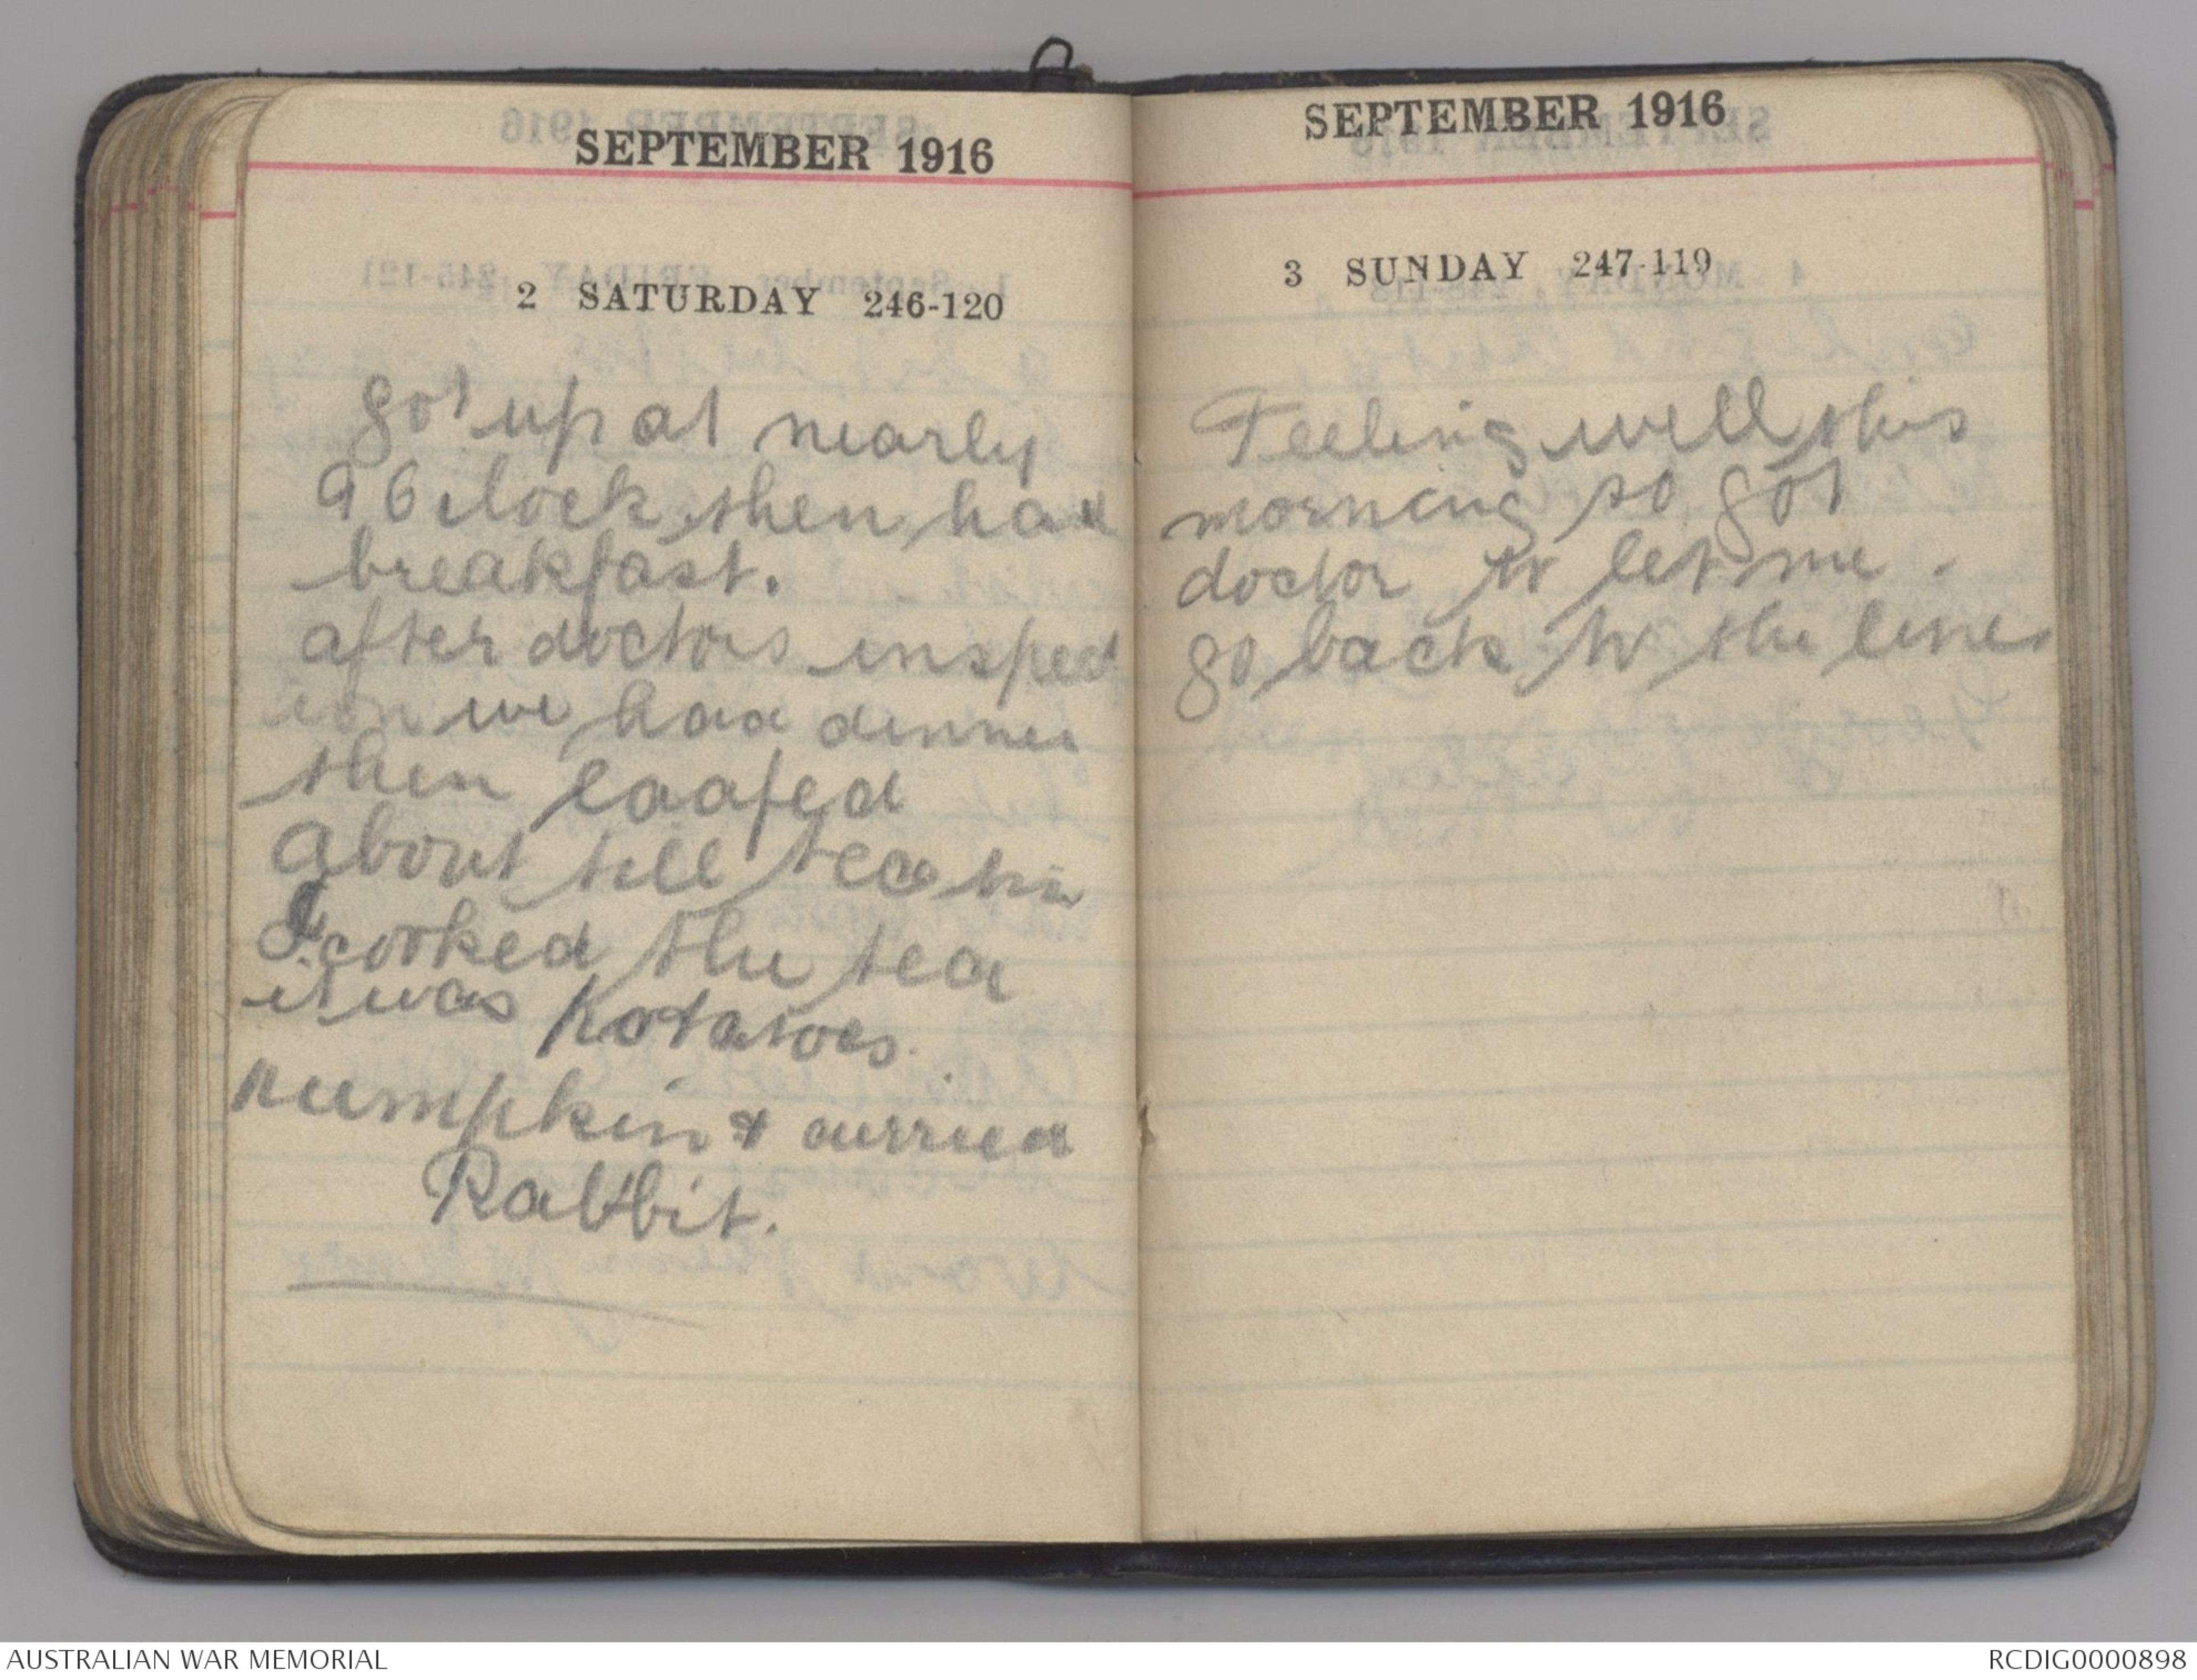 SEPTEMBER 1916
2 SATURDAY 246-120
got up at nearly
9 Oclock then had
breakfast.
after doctors inspect
ion we had dinner
then loafed
about till tea
I cooked the tea
it was Potatoes
Pumpkin & curried
Rabbit.
SEPTEMBER 1916
3 SUNDAY 247-119
Feeling well this
morning so got
doctor to let me
go back to the lines
AUSTRALIAN WAR MEMORIAL
RCDIG0000898